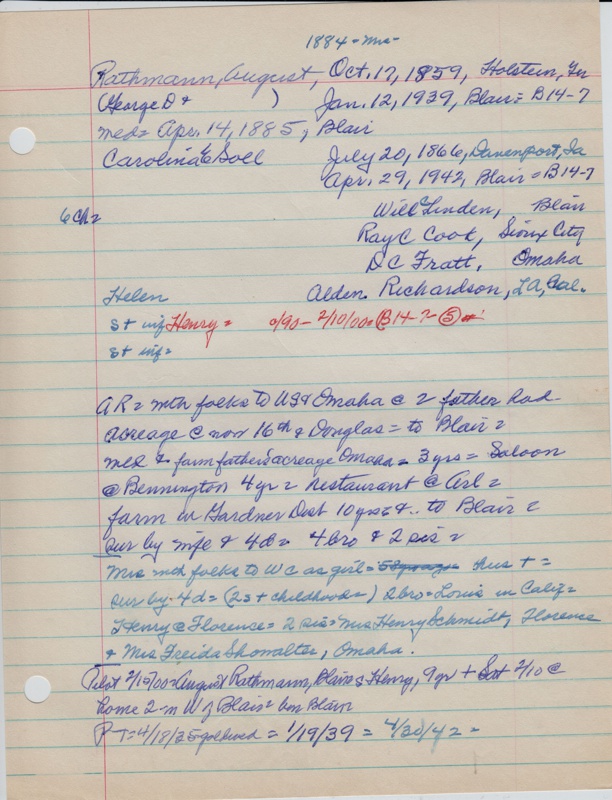 1884 - Mrs -
Rathmann, August, Oct. 17, 1859, Holstein, Gr
(George D & ) Jan. 12, 1939, Blair = B14-7
med = Apr. 14, 1885, Blair
Carolina E Goll July 20, 1866, Davenport, Ia
Apr. 29, 1942, Blair = B14-7
6 Ch = Will Linden, Blair
Ray C Cook, Sioux City
D C Fratt, Omaha
Helen Alden Richardson, LA, Cal.
st inf Henry = 2/10/00 = B14-7-5
st inf =
AR = with folks to US & Omaha @ 2 father had
acreage @ now 16th & Douglas = to Blair =
med & farm father's acreage Omaha = 3 yrs = Saloon
@ Bennington 4 yr = restaurant @ Arl =
farm in Gardner Dist 10 yrs = & .. to Blair =
sur by wife & 4 d = 4 bro & 2 sis =
Mrs with folks to WC as girl = thus + =
sur by 4 d = (2 s + childhood =) 2 bro = Louis in Calif =
Henry @ Florence = 2 sis = Mrs Henry Schmidt, Florence
& Mrs Freida Showalter, Omaha.
Pilot 2/15/00 = August Rathmann, Blair s Henry, 9 yr + Sat 2/10 @
home 2-m W of Blair = brn Blair
P T = 4/18/35 = gold wed = 1/19/39 = 4/30/42 =